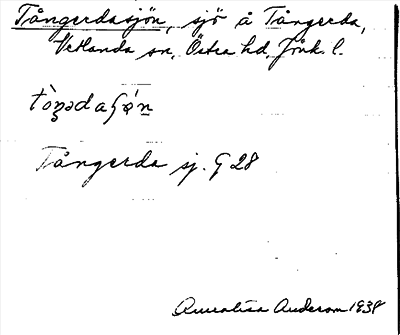 Tångerdasjön, sjö å Tångerda,
Vetlanda sn, Östra hd, Jönk. l.
tòŋədaʃǿn
Tångerda sj. G 28
Annalisa Anderson 1938